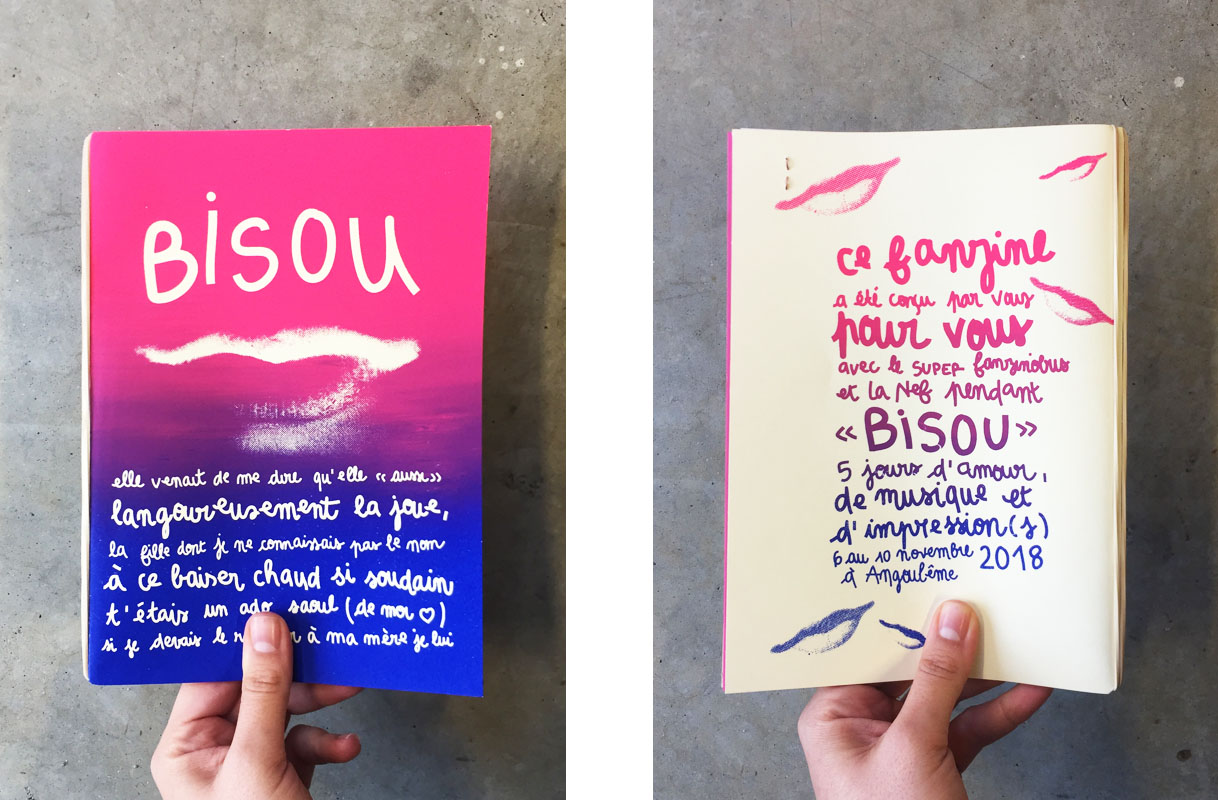 BiSOU
elle venait de me dire qu'elle « aussi »
langoureusement la joue,
la fille dont je ne connaissais pas le nom
à ce baiser chaud si soudain
t'étais un ado saoul (de moi ♡)
si je devais le à ma mère je lui
ce fanzine
a été conçu par vous
pour vous
avec le SUPER fanzinobus
et la Nef pendant
« BiSOU »
5 jours d'amour,
de musique et
d'impression(s)
6 au 10 novembre 2018
à Angoulême